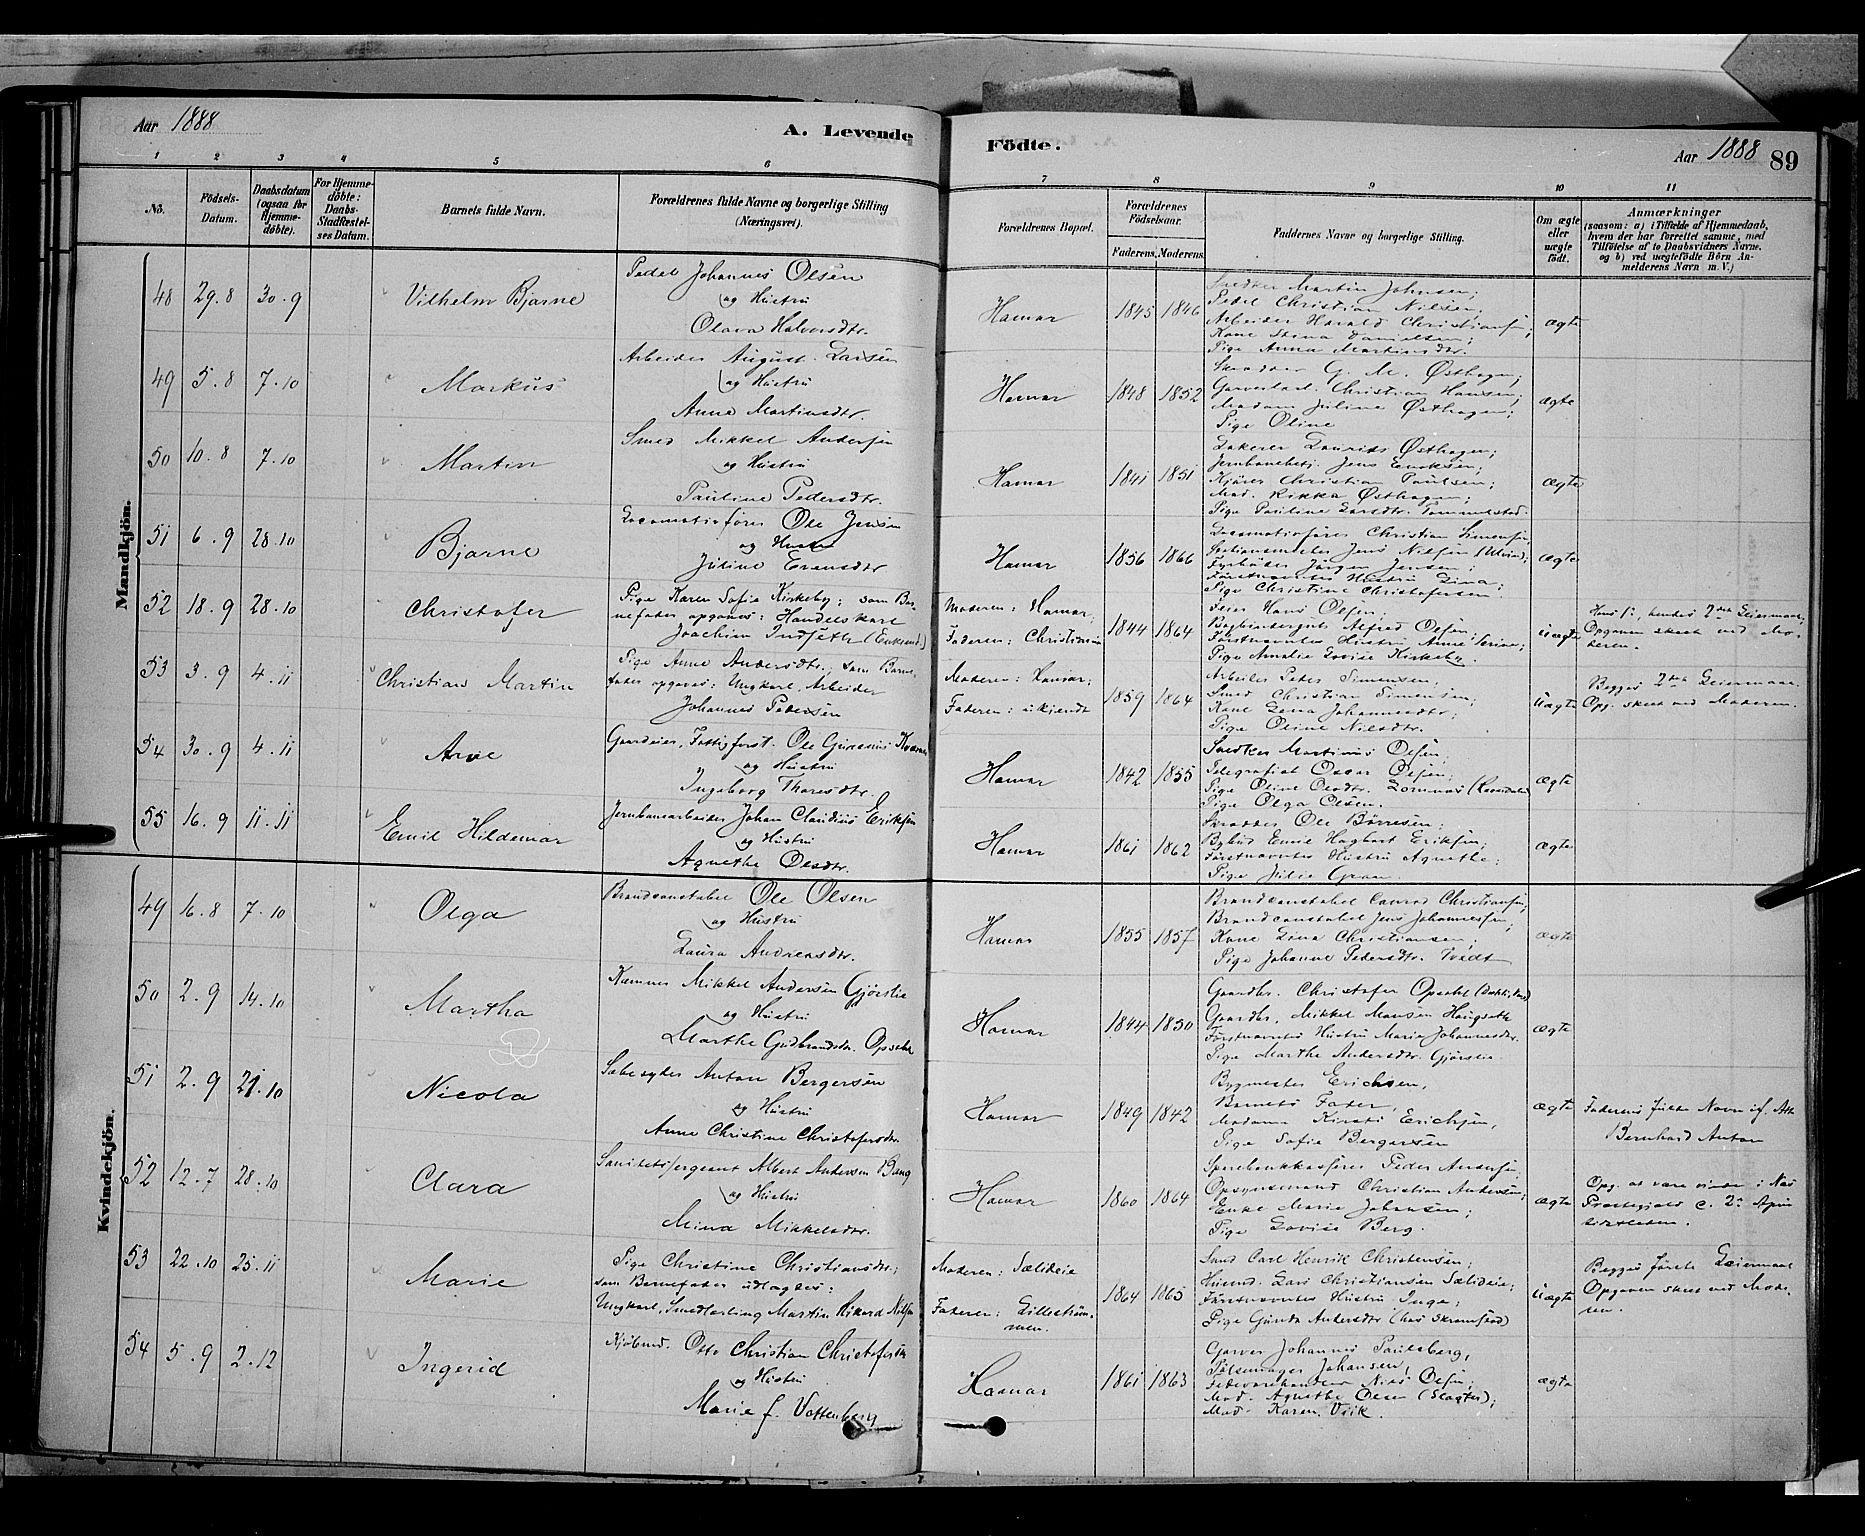 Aar 1888
A. Levende
Födte.
Aar 1888
89
1 2 3 4 5 6 7 8 9 10 11
No.
Födsels-
Datum.
Daabsdatum
(ogsaa for
Hjemme-
döbte).
For Hjemme-
döbte:
Daabs-
Stadfæstel-
ses Datum.
Barnets fulde Navn.
Forældrenes fulde Navne og borgerlige Stilling
(Næringsvei).
Forældrenes Bopæl.
Forældrenes
Födselsaar.
Faderens. Moderens.
Faddernes Navne og borgerlige Stilling.
Om ægte
eller
uægte
födt.
Anmærkninger
(saasom: a) i Tilfælde af Hjemmedaab,
hvem der har forrettet samme, med
Tilföielse af to Daabsvidners Navne.
og b) ved uægtefödte Börn An-
melderens Navn m. V.)
Mandkjön.
48 29.8 30.9 Vilhelm Bjarne
Pedel Johannes Olsen
og Hustru
Olava Halvorsdtr.
Hamar 1845 1846
Snedker Martin Johnsen;
Pedel Christian Nilsen;
Arbeider Harald Christiansen;
Kone Stina Danielsen;
Pige Anna Martinsdtr.
ægte
49 5.8 7.10 Markus
Arbeider August Larsen
og Hustru
Anne Martinsdtr.
Hamar 1848 1852
G. M. Østhagen;
Christian Hansen;
Madam Juline Østhagen;
Pige Oline
ægte
50 10.8 7.10 Martin
Smed Mikkel Andersen
og Hustru
Pauline Pedersdtr.
Hamar 1841 1851
Laurits Østhagen;
Jernbanebetj. Jens Enoksen;
Kjører Christian Paulsen;
Mad. Rikka Østhagen;
Pige Pauline Larsdtr. Tommelstad.
ægte
51 6.9 28.10 Bjarne
Locomotivfører Ole Jensen
og Hustru
Juline Evensdtr
Hamar 1856 1866
Locomotivfører Christian Simensen,
Jens Nilsen
Fyrbøder Jørgen Jensen;
Førstnævntes Hustru Lina;
Pige Christine Christofersen.
ægte
52 18.9 28.10 Christofer
Pige Karen Sofie Kirkeby; som Bar-
nefader opgaves: Handelskarl
Joachim Indseth (Enkemd.)
Moderen: Hamar;
Faderen: Christiania
1844 1864
Feier Hans Olsen;
Alfred Olsen;
Førstnævntes Hustru Anne
Pige Amalie Lovise Kirkeby.
Uægte
hendes 2det Leiermaal.
Opgaven skeet ved Mo-
deren.
53 3.9 4.11 Christian Martin
Pige Anne Andersdtr.; som Barne-
fader opgaves: Ungkarl, Arbeider
Johannes Pedersen
Moderen: Hamar;
Faderen: ukjendt
1859 1864
Arbeider Peter Simensen;
Smed Christian Simensen;
Kone Lena Johannesdtr;
Pige Oline Nilsdtr.
Uægte
Begges 2det Leiermaal.
Opg. skeet ved Moderen.
54 30.9 4.11 Arne
Gaardeier, Fattigforst. Ole Gunerius
og Hustru
Ingeborg Thoresdtr.
Hamar 1842 1855
Snedker Martinus Olsen;
Telegrafist Oscar Olsen;
Pige Oline Olsdtr.
Pige Olga Olsen.
ægte
55 16.9 11.11 Emil Hildemar
Jernbanearbeider Johan Claudius Eriksen
og Hustru
Agnethe Olsdtr.
Hamar 1861 1862
Skrædder Ole Børresen;
Bybud Emil Hagbart Eriksen;
Førstnævntes Hustru Agnethe;
Pige Julie
ægte
Kvindekjön.
49 16.8 7.10 Olga
Brandconstabel Ole Olsen
og Hustru
Laura Andreasdtr.
Hamar 1855 1857
Brandconstabel Conrad Christiansen;
Brandconstabel Jens Johannesen;
Kone Lina Christiansen;
Pige Johanne Pedersdtr. Tvedt
ægte
50 2.9 14.10 Martha
Mikkel Andersen Gjørslie
og Hustru
Marthe Gudbrandsdtr. Opsahl
Hamar 1844 1850
Gaardbr. Christofer Opsahl
Gaardbr. Mikkel Hansen Haugseth
Førstnævntes Hustru Marie Johannesdtr.
Pige Marthe Andersdtr. Gjørslie.
ægte
51 2.9 21.10 Nicola
Sæbesyder Anton Bergersen
og Hustru
Anne Christine Christofersdtr.
Hamar 1849 1842
Bygmester Erichsen,
Barnets Fader,
Madame Kirsti Erichsen,
Pige Sofie Bergersen
ægte
Faderens fulde Navn
Bernhard Anton
52 12.7 28.10 Clara
Sanitetssergeant Albert Andersen Bang
og Hustru
Mina Mikkelsdtr.
Hamar 1860 1864
Sparebankkasserer Peder Andersen,
Opsynsmand Christian Andersen;
Enke Marie Johansen;
Pige Lovise Berg.
ægte
Opg. at være viede i Næs
Præstegjeld
53 22.10 25.11 Marie
Pige Christine Christiansdtr;
som Barnefader udlagdes:
Ungkarl, Snedkerling Martin Rikard Nilsen
Moderen: Sælideie
Faderen: Lillestrøm-
men.
1864 1865
Smed Carl Henrik Christensen;
Husmd. Lars Christiansen Sælideie;
Førstnævntes Hustru Inga;
Pige Gunda Andersdtr
Uægte
Begges første Leiermaal
Opgaven skeet ved Mode-
ren.
54 5.9 2.12 Ingerid
Kjøbmd. Otto Christian Christofersen
og Hustru
Marie f. Vattenberg
Hamar 1861 1863
Garver Johannes Paulsberg,
Pølsemager Johansen,
Fedevarehandler Nils Olsen;
Mad. Agnethe Olsen (Slagter);
Mad. Karen Veik.
ægte